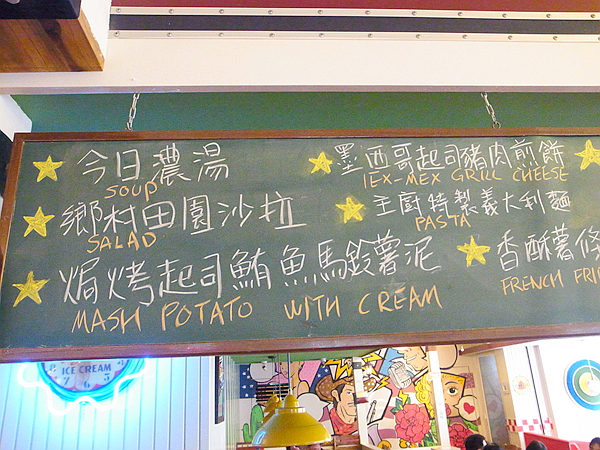 今日濃湯
SOUP
鄉村田園沙拉
SALAD
焗烤起司鮪魚馬鈴薯泥
MASH POTATO WITH CREAM
墨西哥起司豬肉煎餅
TEX-MEX GRILL CHEESE
主廚特製義大利麵
PASTA
香酥薯條
FRENCH FRI
ICE CREAM